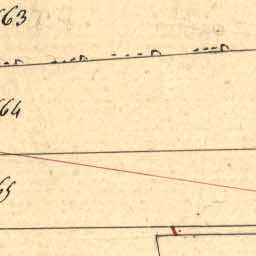 63
64
65